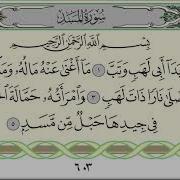 سُورَةُ المَسَدِ
بِسْمِ اللَّهِ الرَّحْمَٰنِ الرَّحِيمِ
يَدَا أَبِي لَهَبٍ وَتَبَّ ١ مَا أَغْنَىٰ عَنْهُ مَالُهُ
نَارًا ذَاتَ لَهَبٍ ٣ وَامْرَأَتُهُ حَمَّالَةَ
فِي جِيدِهَا حَبْلٌ مِّن مَّسَدٍ ٥
٦٠٣